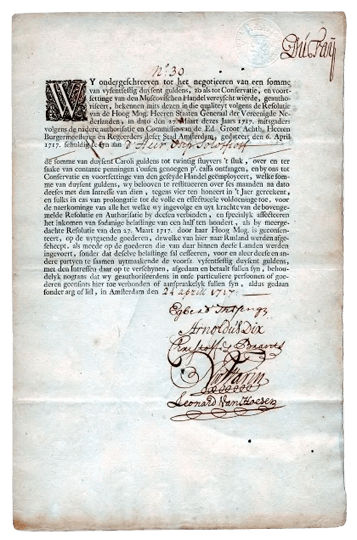 No 39
WY ondergeschreeven tot het negotieren van een somme
van vyfentseftig duysent guldens, zo als tot Conservatie, en voort-
settinge van den Moscovischen Handel vereyscht wierde, geautho-
riseert, bekennen mits dezen in die qualiteyt volgens de Resolutie
van de Hoog Mog. Heeren Staaten Generaal der Vereenigde Ne-
derlanden, in dato den 27. Maart deses Jaars 1717. mitsgaders
volgens de nadere authorisatie en Commissie van de Ed. Groot Achtb. Heeren
Burgermeesteren en Regeerders deser Stad Amsterdam, gedateert den 6. April
1717. schuldig te syn aan d'Heer
de somme van duysent Caroli guldens tot twintig stuyvers 't stuk, over en ter
saake van contante penningen t'onsen genoegen p'. cassa ontfangen, en by ons tot
Conservatie en voortsettinge van den geseyde Handel geemployeert, welke som-
me van duysent guldens, wy belooven te restitueeren over ses maanden na dato
deeses met den Intressen van dien, tegens vier ten hondert in 't Jaer gereekent,
en sulks in cas van prolongatie tot de volle en effectueele voldoeninge toe, voor
de naerkominge van alle het welke wy ingevolge en uyt kracht van de bovenge-
melde Resolutie en Authorisatie by deesen verbinden, en specialyk affecteeren
het inkomen van sodanige belastingen van een half ten hondert, als by meerge-
dachte Resolutie van den 27. Maart 1717. door haar Hoog Mog. is geconsen-
teert, op de uytgaande goederen, dewelke van hier naar Rusland werden afge-
scheept. als mede op de goederen die van daar binnen deese Landen werden
ingevoert, sonder dat deselve belastinge sal cesseeren, voor en aleer deese en an-
dere partyen te saamen uytmaakende de voorsz vyfentseftig duysent guldens,
met den Intressen daar op te verschynen, afgedaan en betaalt sullen syn, behou-
delyk nogtans dat wy geauthoriseerdens in onse particuliere persoonen of goe-
deren geensints hier toe verbonden of aanspraakelyk sullen syn, aldus gedaan
sonder arg of list, in Amsterdam den 24 april 1717.
Arnold Dix
Leonard Van